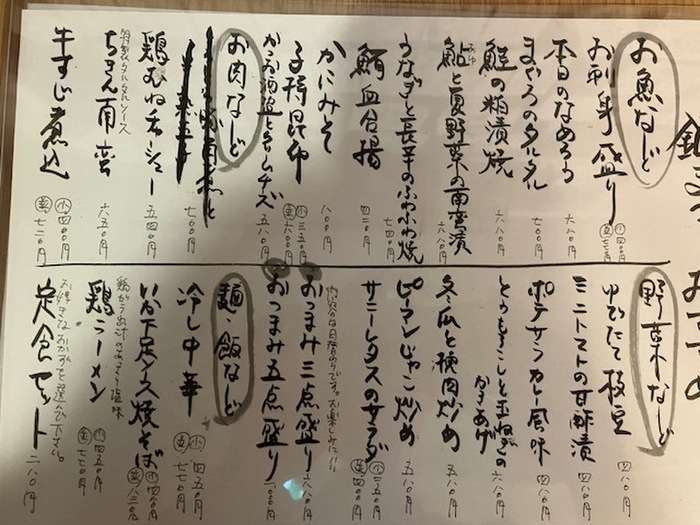 お魚など
お刺身盛り 小 四〇〇円
本日のなめろう 六八〇円
まぐろのタルタル 七〇〇円
鮭の粕漬焼 六八〇円
鮎と夏野菜の南蛮漬 六八〇円
うなぎと長芋のふわふわ焼 七四〇円
四二〇円
かにみそ 八〇〇円
子持昆布 小 三五〇円 並 六〇〇円
かつお酒盗とクリームチーズ 五八〇円
お肉など
七〇〇円
鶏むねチャーシュー 五四〇円
特製タルタルソース
ちきん南蛮 六五〇円
牛すじ煮込 小 四〇〇円 並 七二〇円
野菜など
ゆでたて枝豆 四八〇円
ミニトマトの甘酢漬 四八〇円
ポテサラカレー風味 四八〇円
とうもろこしと玉ねぎの
かきあげ 六八〇円
冬瓜と挽肉炒め 五八〇円
ピーマンじゃこ炒め 五八〇円
サニーレタスのサラダ 小 三五〇円 並
内容は日替わりです。お楽しみに!!
おつまみ三点盛り 六八〇円
おつまみ五点盛り
麺、飯など
冷し中華 小 四五〇円 並 七七〇円
いか下足ソース焼そば 小 四〇〇円 並
鶏がら出汁のあっさり塩味
鶏ラーメン 小 四五〇円 並 七七〇円
お好きなおかずを選んで下さい。
定食セット 二八〇円